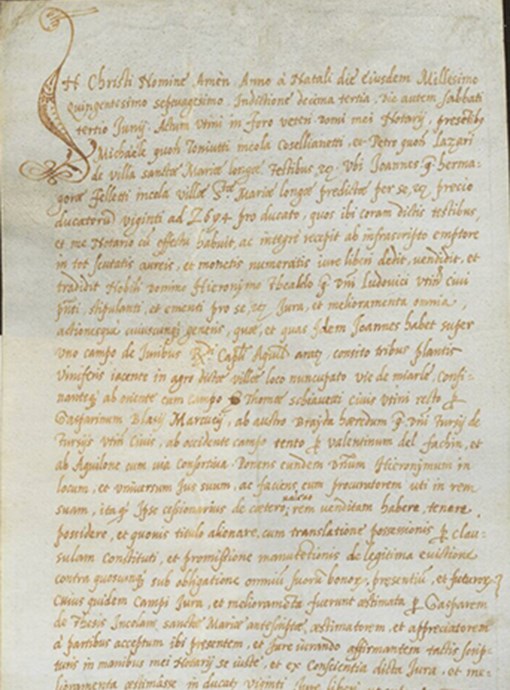 In Christi Nomine Amen. Anno à Natali die eiusdem Millesimo
Quingentesimo septuagesimo, Indictione decima tertia, die autem sabbati
tertio Junij. Actum Utini in foro veteri domi mei Notarij, presentibus
Michaele quoh Toniutti incola Cosellianetti, et Petro quoh Lazari
de villa sanctæ Mariæ longæ testibus, &. Ubi Joannes q herma-
goræ felletti incola villæ Stæ Mariæ longæ predictæ per se, & precio
ducatorũ viginti ad Z 6 s 4 pro ducato, quos ibi coram dictis testibus,
et me Notario cũ effectu habuit, ac integrè recepit ab infrascripto emptore
in tot scutatis aureis, et monetis numeratis iure liberi dedit, vendidit, et
tradidit Nobili domino Hieronymo q Dñi Ludovici Utini civi
pñti, stipulanti, et ementi pro se, & Jura, et melioramenta omnia,
actionesque cuiuscunq generis, quæ, et quas idem Joannes habet super
uno campo de Juribus Rdi Capli arato, consito tribus plantis
viniferis iacente in agro dictæ villæ loco nuncupato vie de miarle, confi-
nanteq ab oriente cum campo Thomæ schiavetti civis Utini recto p
Gasparinum Blasij Marcucij, ab austro Braijda hæredum q Dñi Tursij de
Tursijs Utini Civis, ab occidente campo tento p Valentinum del fachin, et
ab Aquilone cum via consortiva. Ponens eundem Dñum Hieronymum in
locum, et universum Jus suum, ac faciens eum procuratorem uti in rem
suam, ita q ipse cessionarius de cætero rem venditam habere, tenere,
possidere, et quovis titulo alienare, cum translatione possessionis p clau-
sulam Constituti, et promissione manutentionis de legitima evictione
contra quoscunq sub obligatione omniũ suorũ bonor, presentiũ, et futuror.
Cuius quidem Campi Jura, et melioramenta fuerunt æstimata p Gasparem
de Thesis Incolam sanctæ Mariæ antescriptæ, æstimatorem, et appreciatorem
à partibus acceptum ibi presentem, et Jure iurando affirmantem tactis scrip-
turis in manibus mei Notarij se iuste, et ex Conscientia dicta Jura, et me-
lioramenta æstimasse in ducatis viginti Jure liberi